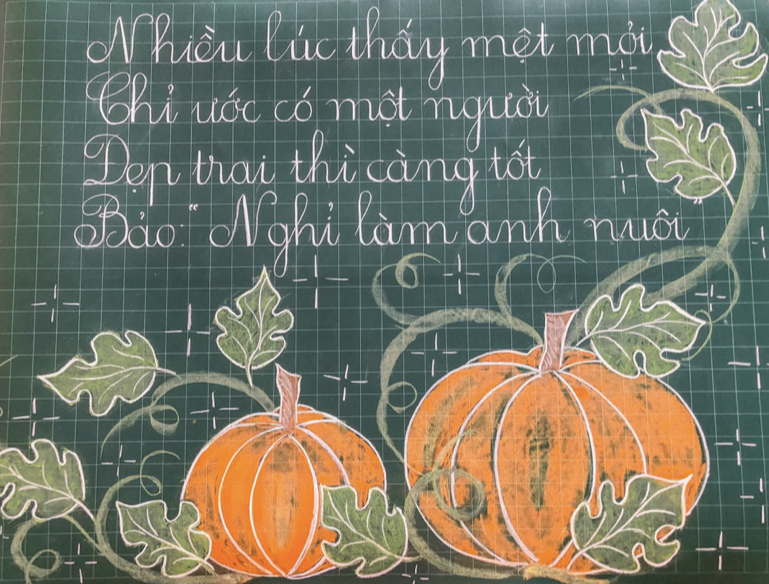 Nhiều lúc thấy mệt mỏi
Chỉ ước có một người
Đẹp trai thì càng tốt
Bảo: "Nghỉ làm anh nuôi"